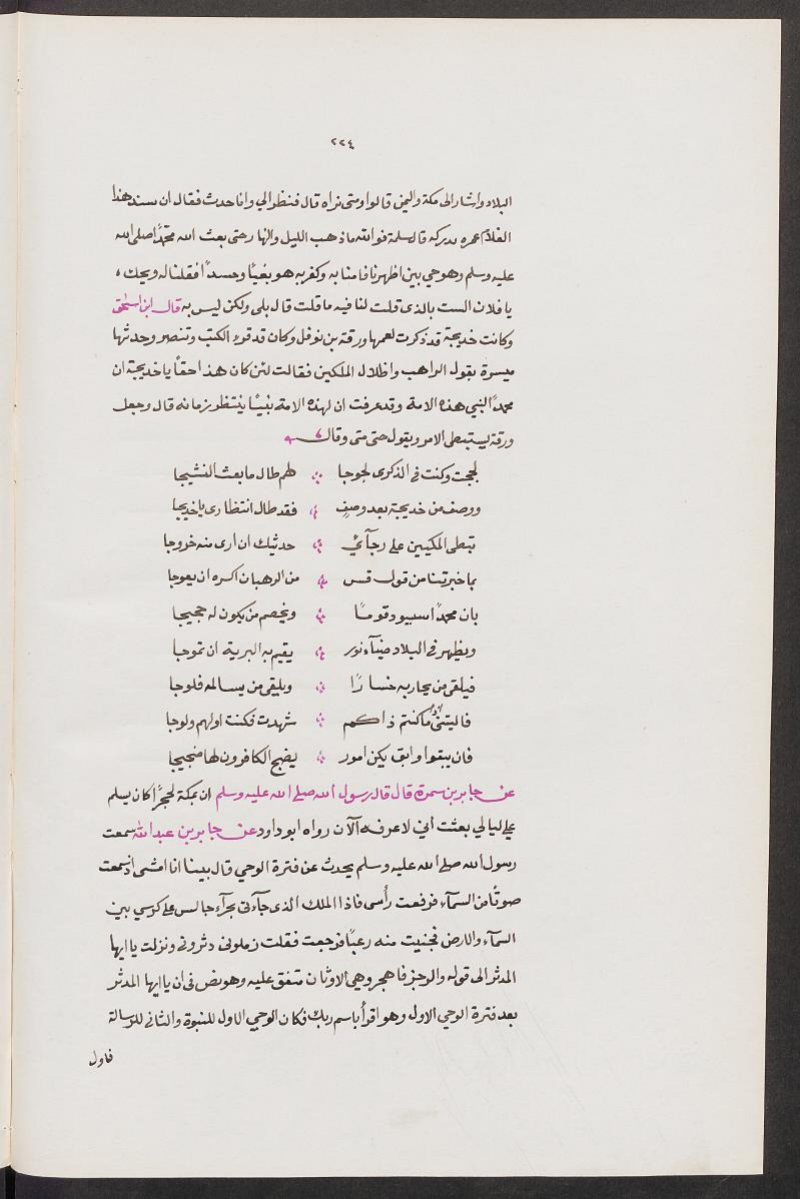 ٢٢٤
البلاد واشار الى مكة واليمن قالوا ومتى نراه قال فنظر الي وانا حدث فقال ان يستنفذ هذا
الغلام عمره يدركه قال سلمة فوالله ما ذهب الليل والنهار حتى بعث الله محمدًا صلى الله
عليه وسلم وهو حي بين اظهرنا فامنا به وكفر به هو بغيًا وحسدًا فقلنا له ويحك ،
يا فلان الست بالذى قلت لنا فيه ما قلت قال بلى ولكن ليس به قال ابن اسحٰق
وكانت خديجة قد ذكرت لعمها ورقة بن نوفل وكان قد قرء الكتب وتنصر وحدثها
ميسرة بقول الراهب واظلال الملكين فقالت لئن كان هذا حقًا يا خديجة ان
محمدًا لنبي هذه الامة وقد عرفت ان لهذه الامة نبيًا ينتظر زمانه قال وجعل
ورقة يستبطى الامر ويقول حتى متى وقال
لججت وكنت في الذكرى لجوجا ∴ لهم طال ما بعث النشيجا
ووصف من خديجة بعد وصفٍ ∴ فقد طال انتظارى يا خديجا
تبطى المكيين على رجآئي ∴ حديثك ان ارى منه خروجا
بما خبرتينا من قول قس ∴ من الرهبان اكره ان يعوجا
بان محمدًا سيسود قومًا ∴ ويخصم من يكون له حجيجا
ويظهر في البلاد ضيآء نور ∴ يقيم به البرية ان تموجا
فيلقى من يحاربه خسارًا ∴ ويلقى من يسالمه فلوجا
فاليتنى ما كنتم ذاكم ∴ شهدت فكنت اولهم ولوجا
فان يبقوا وابق يكن امور ∴ يضج الكافرون لها ضجيجا
عن جابر بن سمرة قال قال رسول الله صلى الله عليه وسلم ان بمكة لحجرًا كان يسلم
علي ليالي بعثت اني لاعرفه الآن رواه ابو داود عن جابر بن عبد الله سمعت
رسول الله صلى الله عليه وسلم يحدث عن فترة الوحي قال بينا انا امشى اذ سمعت
صوتًا من السمآء فرفعت رأسى فاذا الملك الذى جآءنى بحرآء جالس على كرسي بين
السمآء والارض فجثيت منه رعبًا فرجعت فقلت زملونى دثرونى ونزلت يا ايها
المدثر الى قوله والرجز فاهجر وهي الاوثان متفق عليه وهو نص فى ان يا ايها المدثر
بعد فترة الوحي الاول وهو اقرأ باسم ربك فكان الوحي الاول للنبوة والثانى للرسالة
فاول